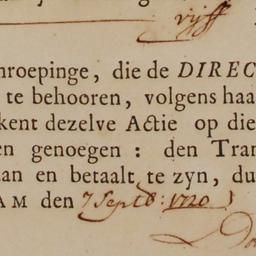 vijff
nroepinge, die de DIREC
te behooren, volgens haa
kent dezelve Actie op die
en genoegen: den Tran
aan en betaalt te zyn, du
AM den 7 Septb: 1720